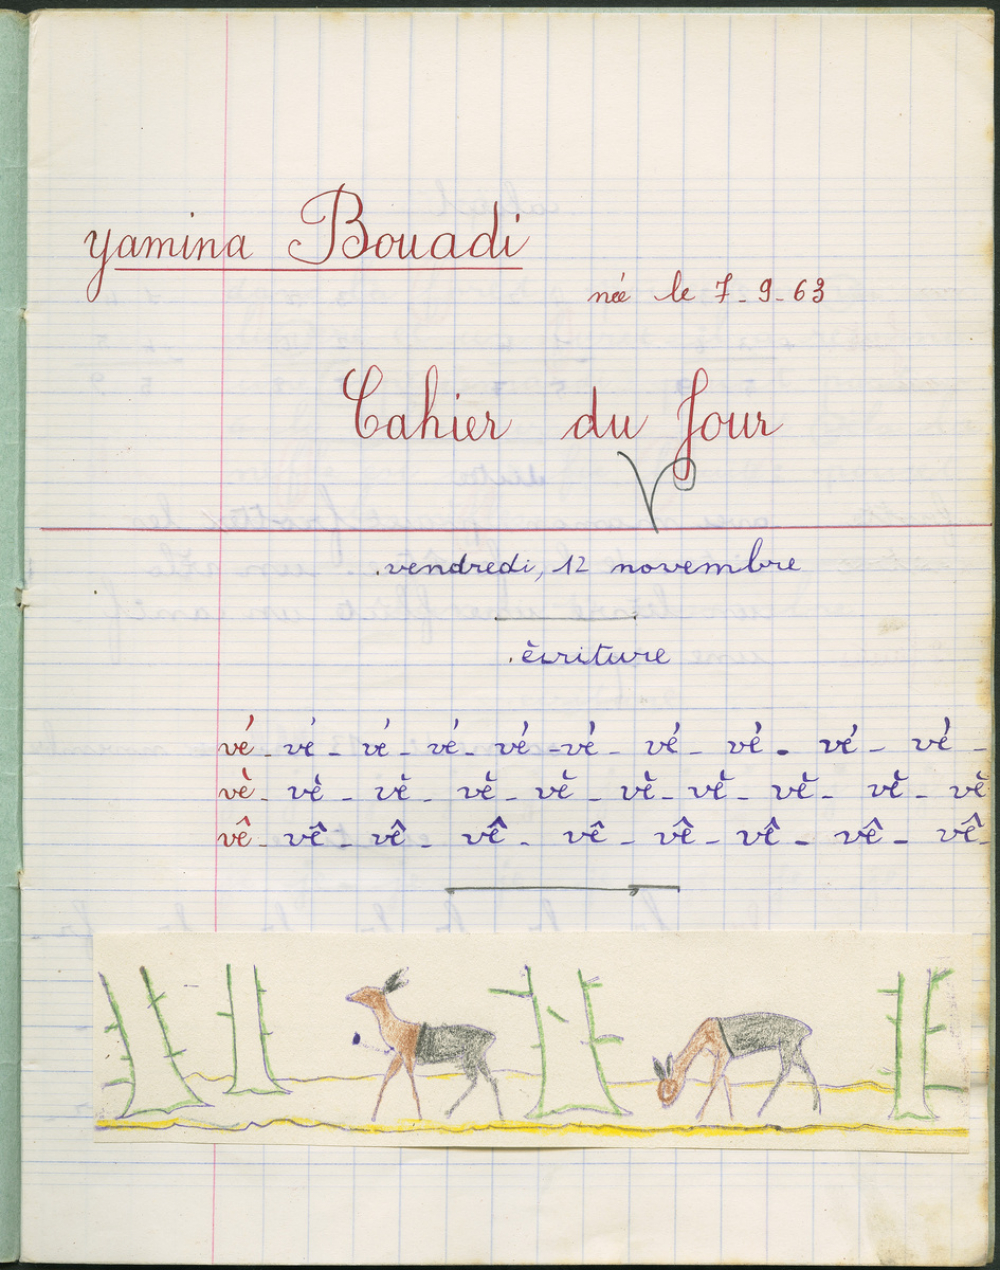 yamina Bouadi
née le 7-9-63
Cahier du Jour
vendredi, 12 novembre
écriture
vé - vé - vé - vé - vé - vé - vé - vé - vé - vé -
vè - vè - vè - vè - vè - vè - vè - vè - vè - vè
vê - vê - vê - vê - vê - vê - vê - vê - vê -